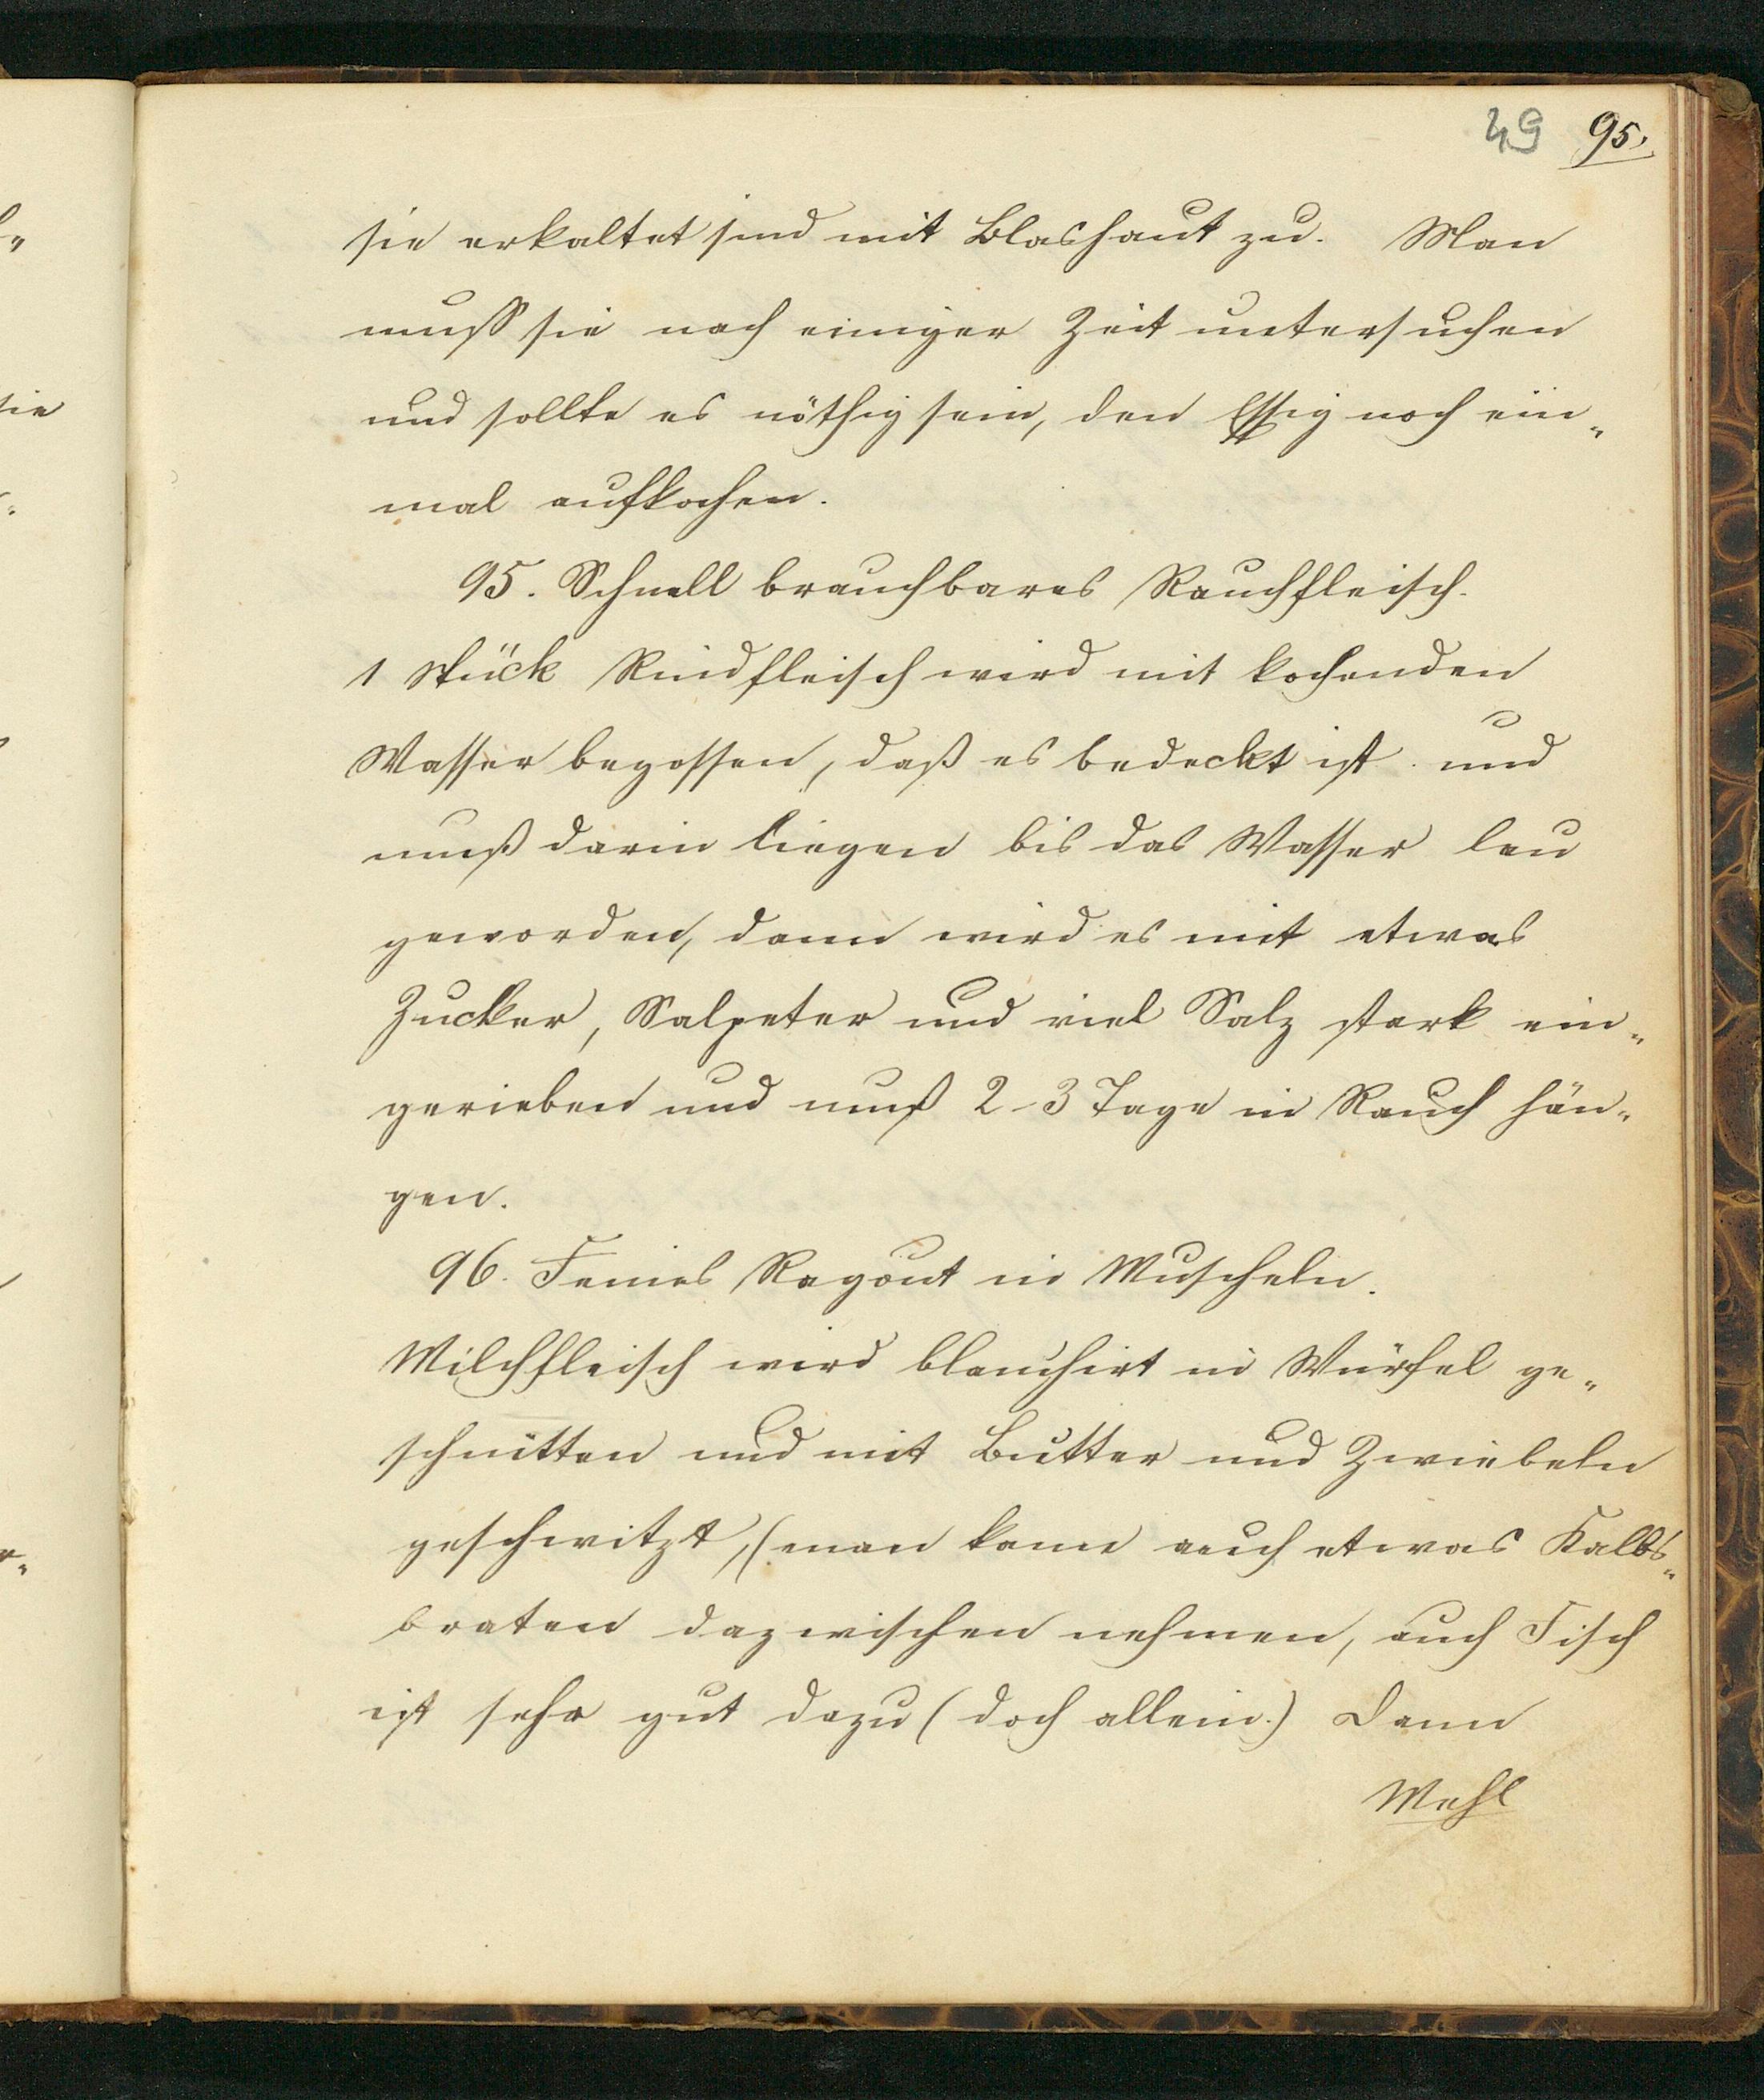 49 95.
sie erkaltet sind mit Blashaut zu. Man
muss sie nach einiger Zeit untersuchen
und sollte es nöthig sein, den Essig noch ein„
mal aufkochen.
95. Schnell brauchbares Rauchfleisch.
1 Stück Rindfleisch wird mit kochenden
Wasser begossen, daß es bedeckt ist und
muß darin liegen bis das Wasser lau
geworden, dann wird es mit etwas
Zucker, Salpeter und viel Salz stark ein„
gerieben und muß 2-3 Tage in Rauch hän„
gen.
96. Feines Ragout in Muscheln.
Milchfleisch wird blanchirt in Würfel ge„
schnitten und mit Butter und Zwiebeln
geschwitzt, (man kann auch etwas Kalbs„
braten dazwischen nehmen, auch Fisch
ist sehr gut dazu (doch allein.) Dann
Mehl